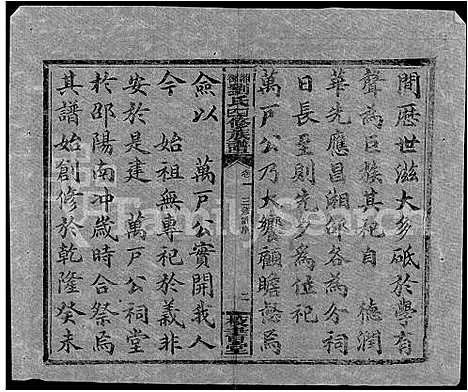 間歷世滋大多砥於學有
聲為巨族其祀自 德潤
華先應昌湘邵各為分祠
日長至則先夕為位祀
萬戶公乃大饗顧瞻愍焉
劉氏六修族譜
卷一
二
僉以 萬戶公實開我人
今 始祖無專祀於義非
安於是建 萬戶公祠堂
於邵陽南冲歲時合祭焉
其譜始創修於乾隆癸未
FamilySearch